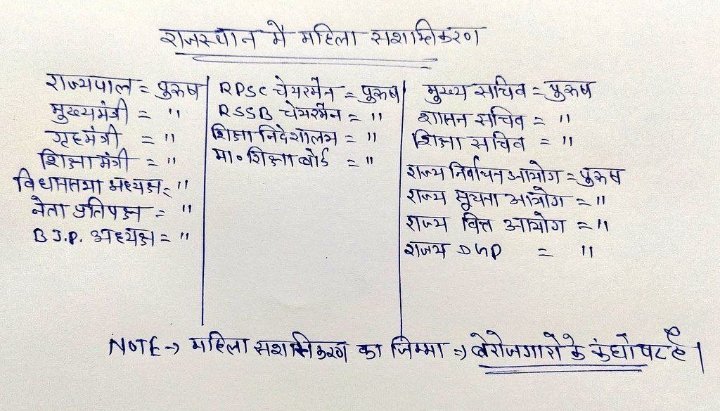 राजस्थान मे महिला सशक्तिकरण
राज्यपाल = पुरुष
मुख्यमंत्री = "
गृहमंत्री = "
शिक्षा मंत्री = "
विधानसभा अध्यक्ष = "
नेता प्रतिपक्ष = "
B.J.P. अध्यक्ष = "
RPSC चेयरमैन = पुरुष
RSSB चेयरमैन = "
शिक्षा निदेशालय = "
मा० शिक्षा बोर्ड = "
मुख्य सचिव = पुरुष
शासन सचिव = "
शिक्षा सचिव = "
राज्य निर्वाचन आयोग = पुरुष
राज्य सूचना आयोग = "
राज्य वित्त आयोग = "
राज्य DGP = "
NOTE → महिला सशक्तिकरण का जिम्मा => बेरोजगारो के कंधो पर है।